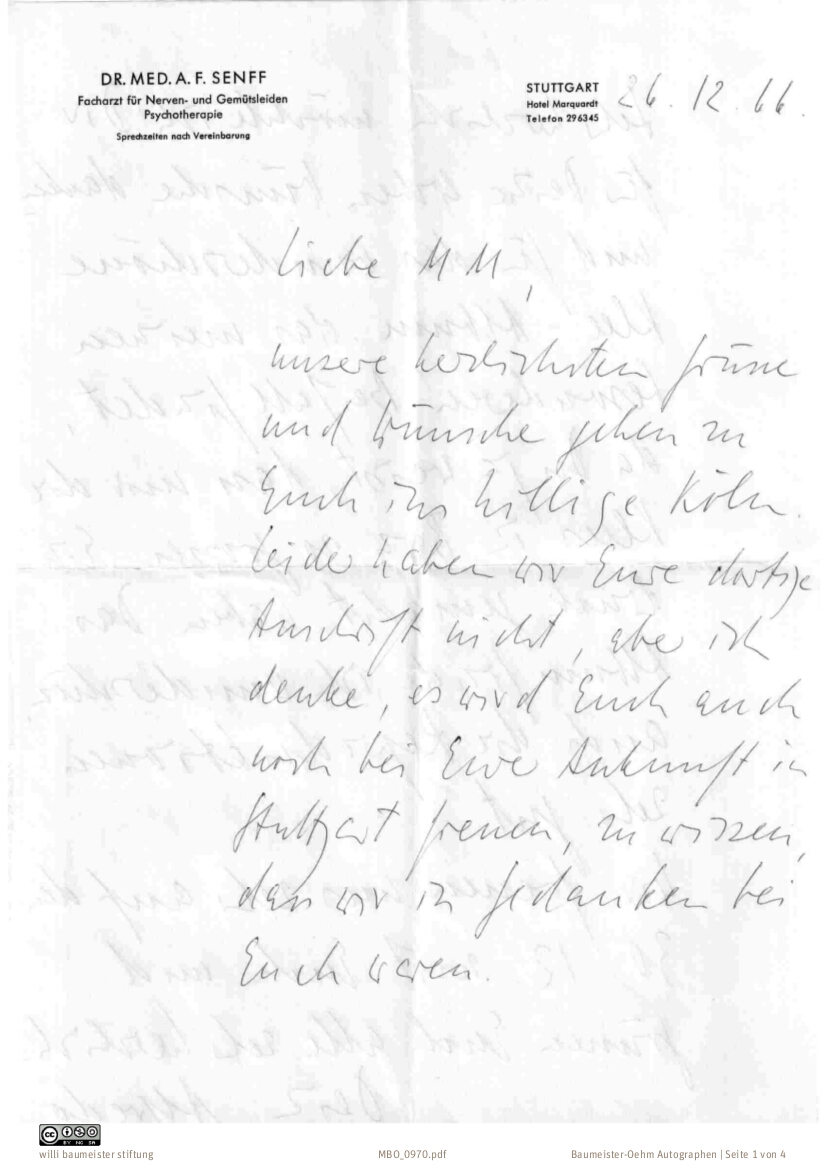 DR. MED. A. F. SENFF
Facharzt für Nerven- und Gemütsleiden
Psychotherapie
Sprechzeiten nach Vereinbarung
STUTTGART
Hotel Marquardt
Telefon 296345
26.12.66.
Liebe MM,
unsere herzlichsten Grüße
und Wünsche gehen zu
Euch ins hillige Köln.
Leider haben wir Eure dortige
Anschrift nicht, aber ich
denke, es wird Euch auch
noch bei Eurer Ankunft in
Stuttgart freuen, zu wissen,
dass wir in Gedanken bei
Euch waren.
CC BY NC SA
willi baumeister stiftung
MBO_0970.pdf
Baumeister-Oehm Autographen | Seite 1 von 4